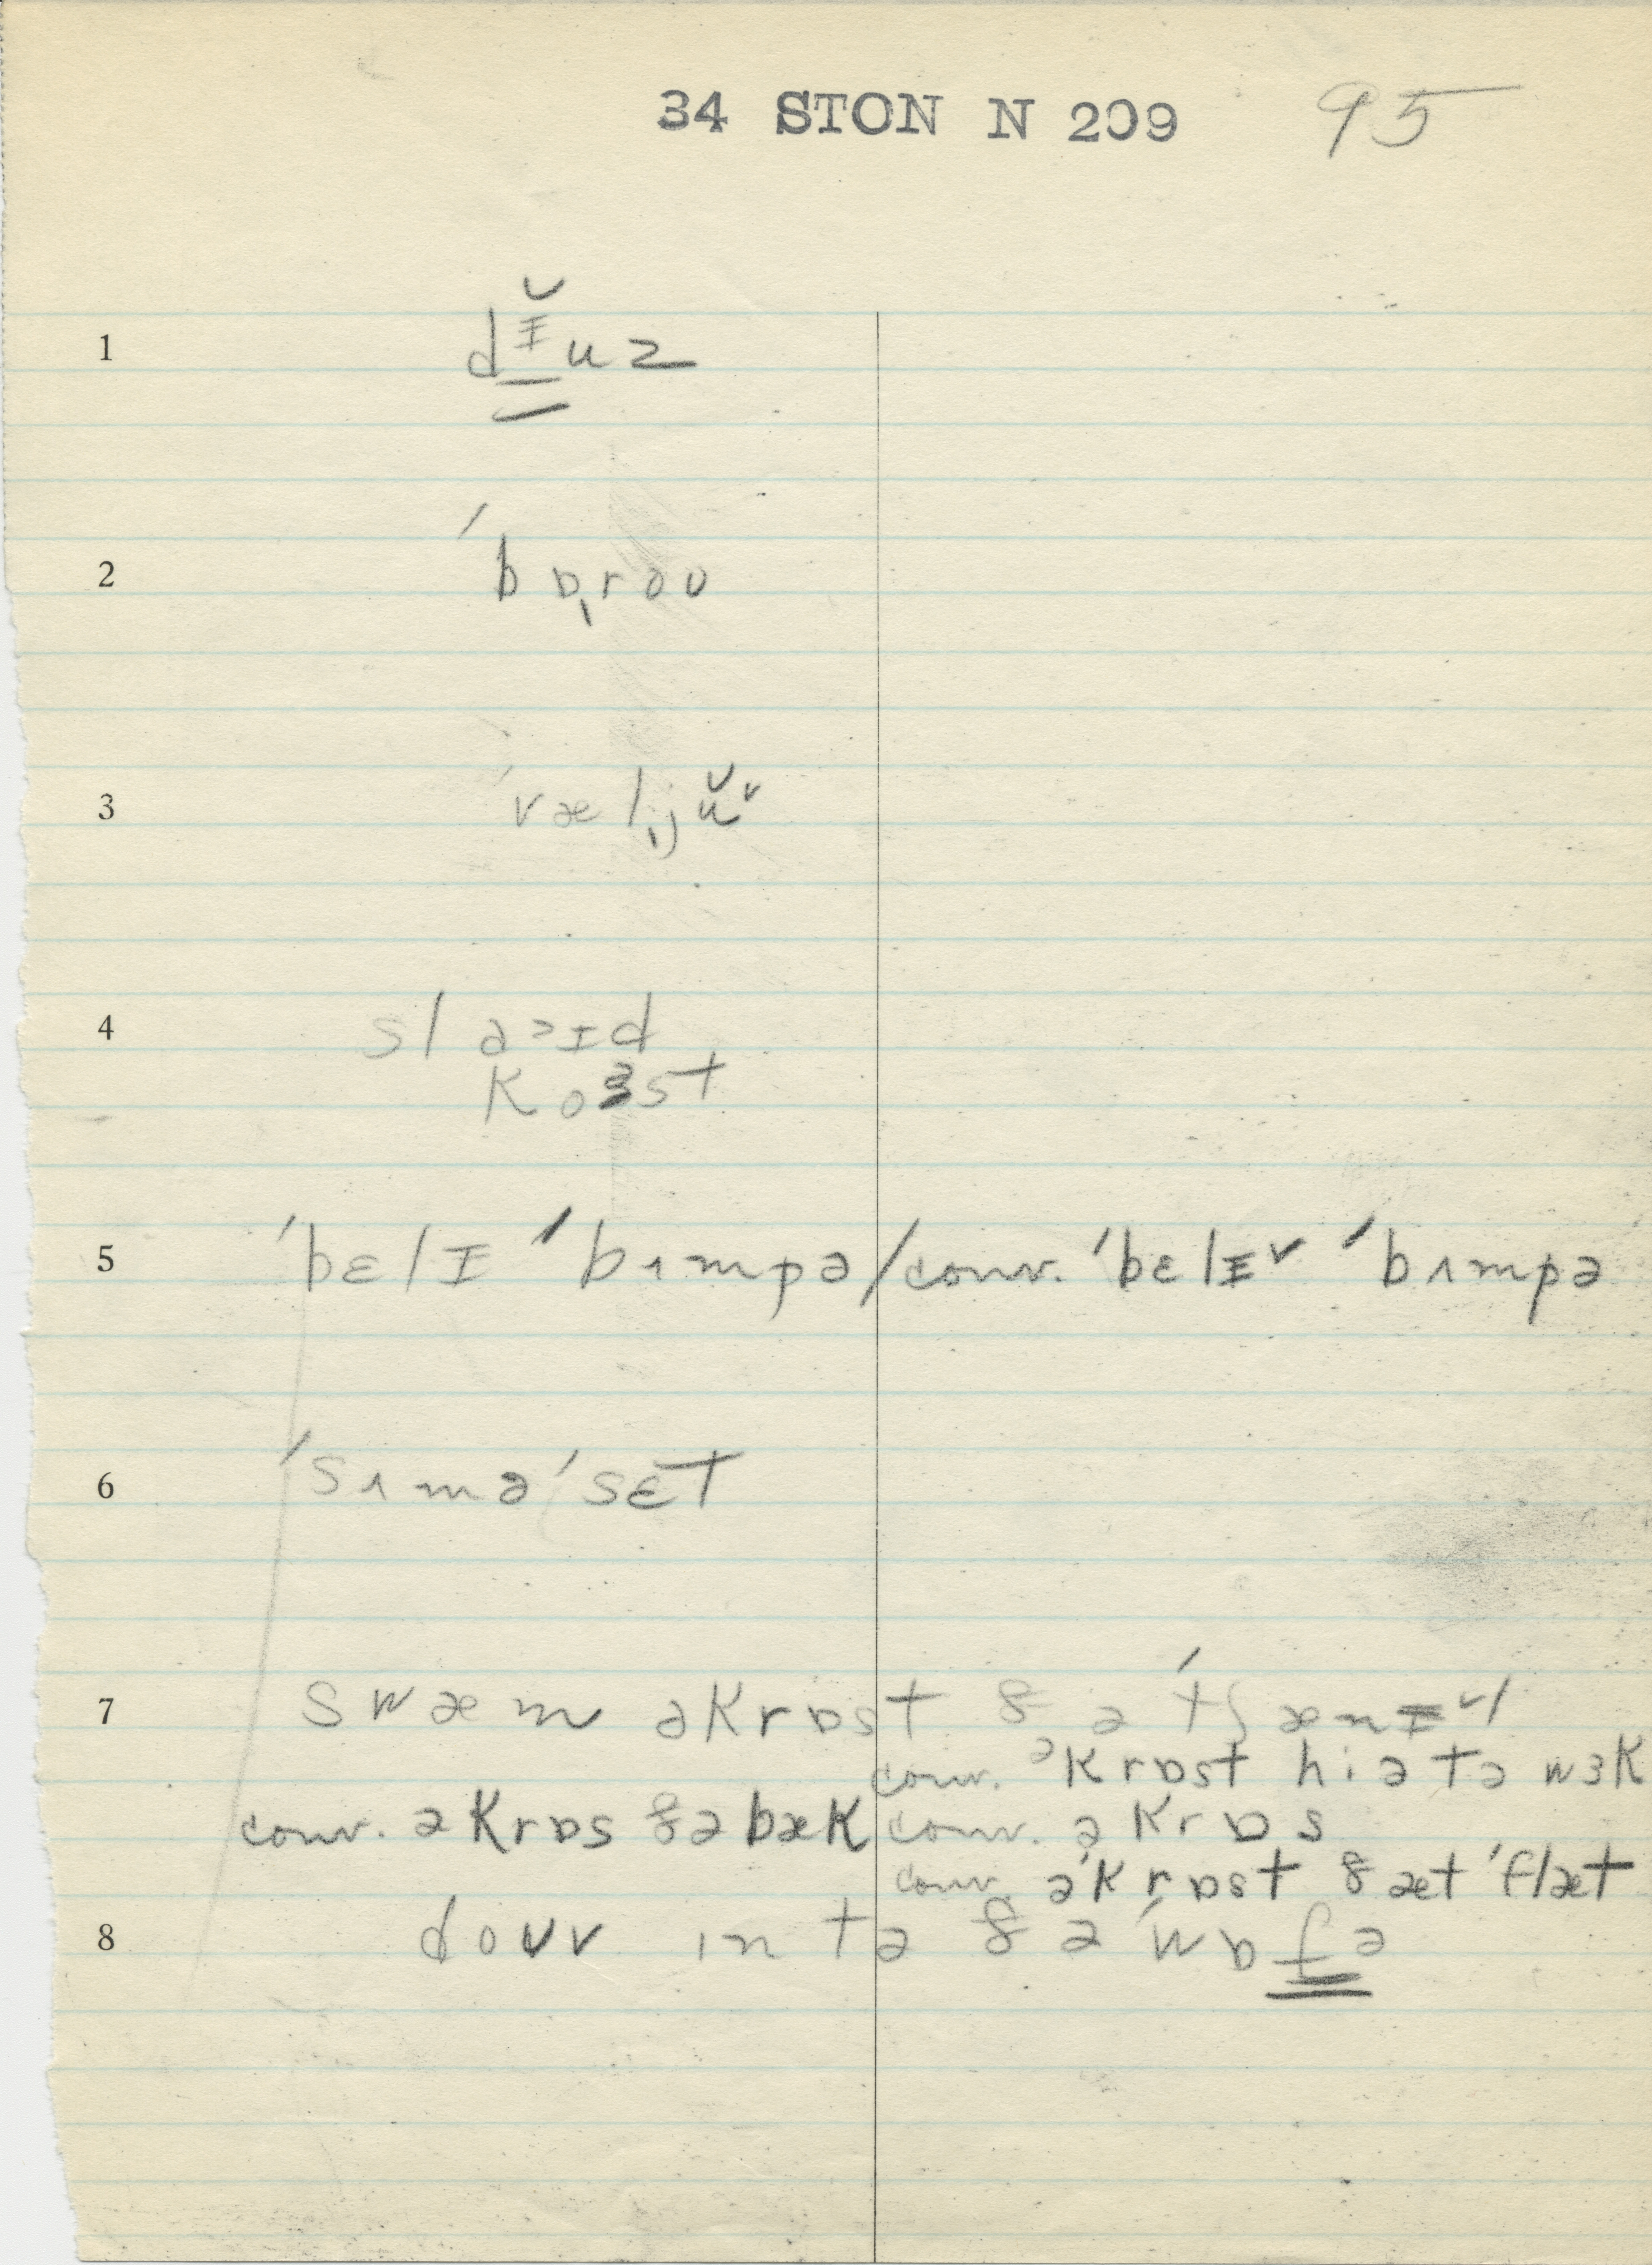 34 STON N 209 95
1 dᵻ̆uz
2 ˈbɒˌroʊ
3 ˈvælˌjŭ˅
4 sl a˃ɪd
koɜst
5 ˈbɛlɪ ˈbʌmpə/conv. ˈbɛlɪ˅ ˈbʌmpə
6 ˈsʌməˈsɛt
7 swæm əkrɒst ðə ˈtʃænᵻ˅l
conv. əkrɒst hiətə wɜk
conv. əkrɒs ðə bæk conv. əkrɒs
conv. əkrɒst ðæt ˈflæt
8 doʊv ɪn tə ðə ˈwɒfə